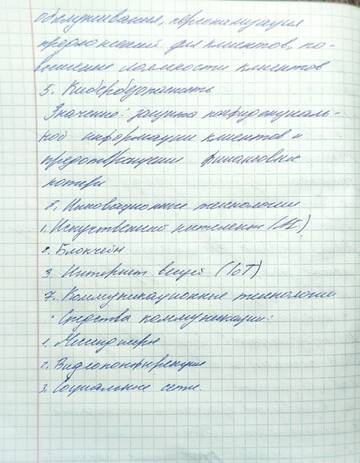 обслуживания, персонализация
предложений для клиентов, по-
вышение лояльности клиентов
5. Кибербезопасность
Значение: защита конфиденциаль-
ной информации клиентов и
предотвращение финансовых
потерь
8. Инновационные технологии
1. Искуственный интелект (AI)
2. Блокчейн
3. Интернет вещей (IoT)
7. Коммуникационные технологии
· Средства коммуникации:
1. Месенджеры
2. Видеоконференции
3. Социальные сети